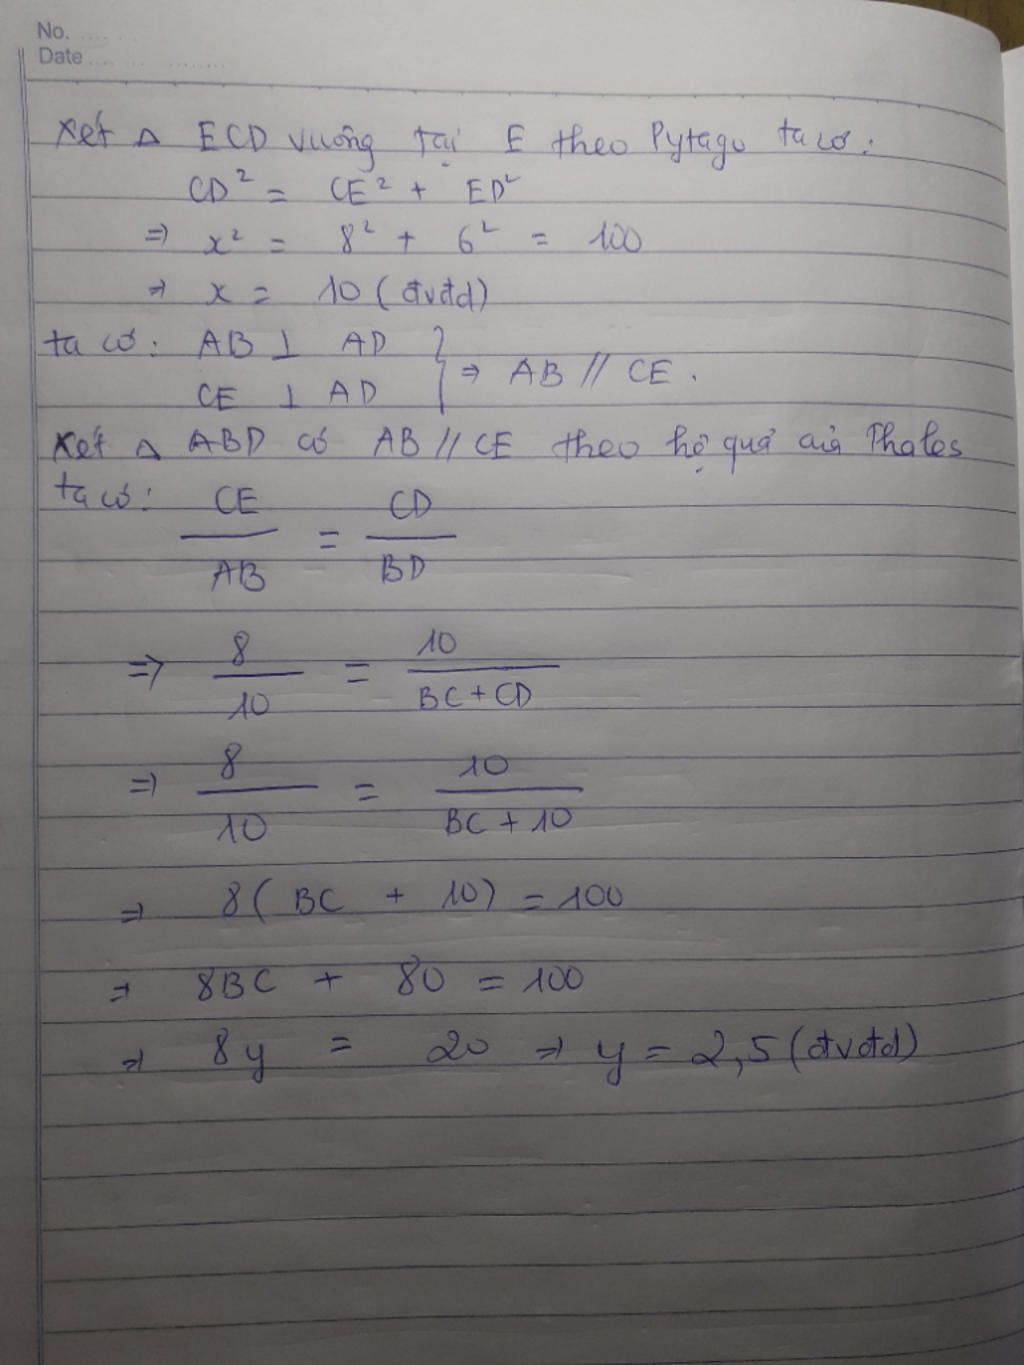 No.
Date
Xét Δ ECD vuông tại E theo Pytago ta có:
CD² = CE² + ED²
⇒ x² = 8² + 6² = 100
⇒ x = 10 (đvđd)
ta có: AB ⊥ AD
CE ⊥ AD } ⇒ AB // CE.
Xét Δ ABD có AB // CE theo hệ quả của Thales
ta có: CE/AB = CD/BD
⇒ 8/10 = 10/(BC + CD)
⇒ 8/10 = 10/(BC + 10)
⇒ 8(BC + 10) = 100
⇒ 8BC + 80 = 100
⇒ 8y = 20 ⇒ y = 2,5 (đvđd)